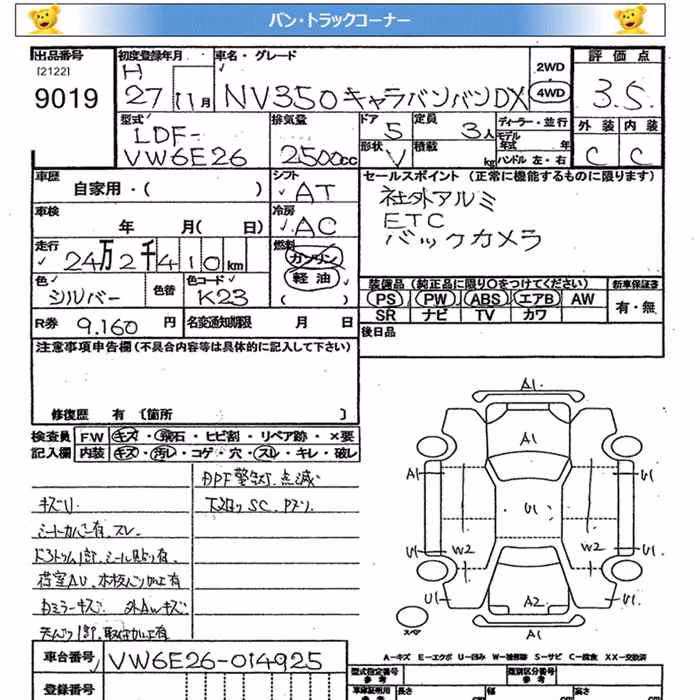 バン・トラックコーナー
出品番号
[2122]
9019
初度登録年月
H
27 11月
車名・グレード
NV350キャラバンバンDX
2WD
4WD
評価点
3.5
型式
LDF-
VW6E26
排気量
2500cc
ドア 5
形状 V
定員 3人
積載 kg
ディーラー・並行
モデル
年式 年
ハンドル 左・右
外装 内装
C C
車歴
自家用・( )
シフト
AT
セールスポイント (正常に機能するものに限ります)
社外アルミ
ETC
バックカメラ
車検
年 月( 日)
冷房
AC
走行
24万2千410km
燃料
ガソリン
軽油
( )
色
シルバー
色替
色コード
K23
装備品(純正品に限り〇をつけてください)
PS PW ABS エアB AW
SR ナビ TV カワ
新車保証書
有・無
R券 9.160円
名変通知期限 月 日
後日品
注意事項申告欄(不具合内容等は具体的に記入して下さい)
修復歴 有 〔箇所 〕
検査員
記入欄
FW キズ・飛石・ヒビ割・リペア跡・×要
内装 キズ・汚レ・コゲ・穴・スレ・キレ・破レ
DPF警告灯点滅
キズU
下回りSC.Pズリ
シートカバー有.スレ
ドアトリム1部.シール貼り有
荷室AU.木板パン加工有
ミラーキズ 外AWキズ
天ムリ1部.取付加工有
A1
A1
A1
U1
U1
U1
U1
W2
W2
U1
U1
A2
A1
スペア
A-キズ E-エクボ U-凹み W-補修跡 S-サビ C-腐食 XX-交換済
車台番号
VW6E26-014925
登録番号
型式指定番号
参考
類別区分番号
参考
車庫証明用
参考
長さ cm
幅 cm
高さ cm